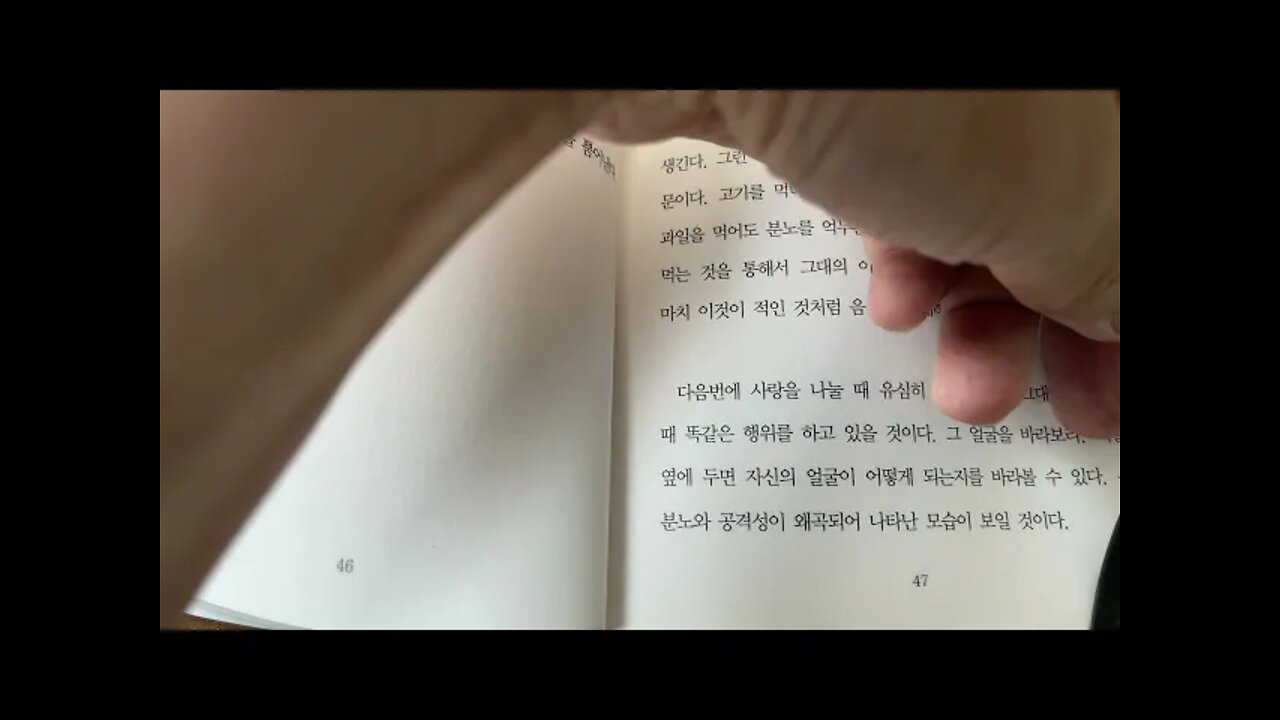 생긴다. 그런
문이다. 고기를
과일을 먹어도 분노를
먹는 것을 통해서 그대의
마치 이것이 적인 것처럼 음
다음번에 사랑을 나눌 때 유심히
때 똑같은 행위를 하고 있을 것이다. 그 얼굴을
옆에 두면 자신의 얼굴이 어떻게 되는지를 바라볼 수 있다.
분노와 공격성이 왜곡되어 나타난 모습이 보일 것이다.
46
47